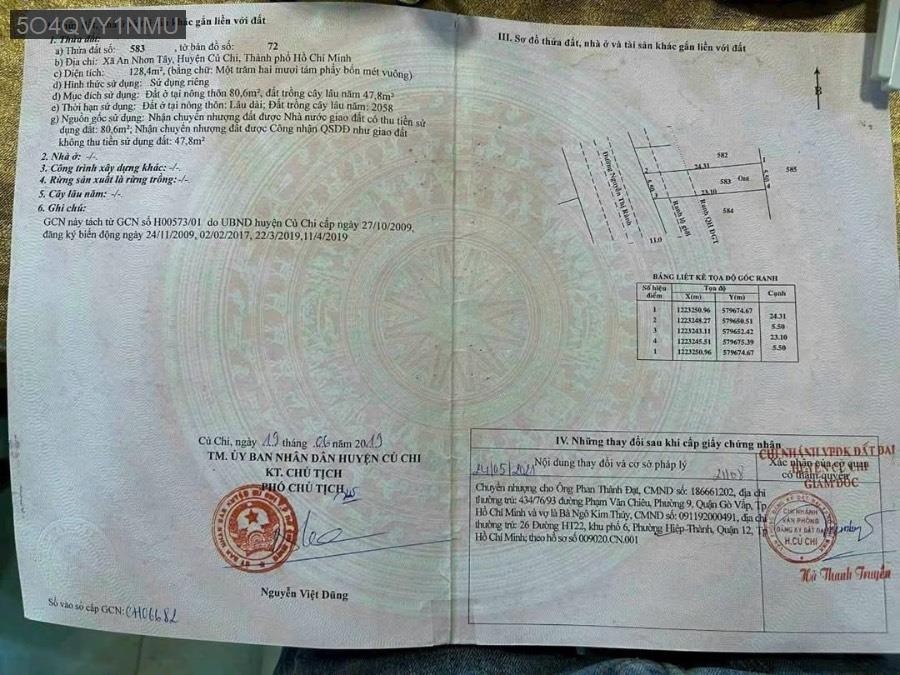 5O4QVY1NMU
khác gắn liền với đất
1. Thửa đất:
a) Thửa đất số: 583 , tờ bản đồ số: 72
b) Địa chỉ: Xã An Nhơn Tây, Huyện Củ Chi, Thành phố Hồ Chí Minh
c) Diện tích: 128,4m², (bằng chữ: Một trăm hai mươi tám phẩy bốn mét vuông)
d) Hình thức sử dụng: Sử dụng riêng
đ) Mục đích sử dụng: Đất ở tại nông thôn 80,6m², đất trồng cây lâu năm 47,8m²
e) Thời hạn sử dụng: Đất ở tại nông thôn: Lâu dài; Đất trồng cây lâu năm: 2058
g) Nguồn gốc sử dụng: Nhận chuyển nhượng đất được Nhà nước giao đất có thu tiền sử
dụng đất: 80,6m²; Nhận chuyển nhượng đất được Công nhận QSDĐ như giao đất
không thu tiền sử dụng đất: 47,8m²
2. Nhà ở: -/-.
3. Công trình xây dựng khác: -/-.
4. Rừng sản xuất là rừng trồng: -/-.
5. Cây lâu năm: -/-.
6. Ghi chú:
GCN này tách từ GCN số H00573/01 do UBND huyện Củ Chi cấp ngày 27/10/2009,
đăng ký biến động ngày 24/11/2009, 02/02/2017, 22/3/2019,11/4/2019
Củ Chi, ngày 19 tháng 06 năm 2019
TM. ỦY BAN NHÂN DÂN HUYỆN CỦ CHI
KT. CHỦ TỊCH
PHÓ CHỦ TỊCH
Nguyễn Việt Dũng
Số vào sổ cấp GCN: CH06682
III. Sơ đồ thửa đất, nhà ở và tài sản khác gắn liền với đất
B
Đường Nguyễn Thị Rành
Ranh lộ giới
Ranh QH ĐGT
11.0
582
24.31
1
2
5.50
583
Ont
5.50
585
23.10
584
BẢNG LIỆT KÊ TỌA ĐỘ GÓC RANH
Số hiệu điểm Tọa độ Cạnh
X(m) Y(m)
1 1223250.96 579674.67
24.31
2 1223248.27 579650.51
5.50
3 1223243.11 579652.42
23.10
4 1223245.51 579675.39
5.50
1 1223250.96 579674.67
IV. Những thay đổi sau khi cấp giấy chứng nhận
Nội dung thay đổi và cơ sở pháp lý
Xác nhận của cơ quan
có thẩm quyền
24/05/2021
Chuyển nhượng cho Ông Phan Thành Đạt, CMND số: 186661202, địa chỉ
thường trú: 434/7693 đường Phạm Văn Chiêu, Phường 9, Quận Gò Vấp, Tp
Hồ Chí Minh và vợ là Bà Ngô Kim Thúy, CMND số: 091192000491, địa chỉ
thường trú: 26 Đường HT22, khu phố 6, Phường Hiệp Thành, Quận 12, Tp
Hồ Chí Minh; theo hồ sơ số 009020.CN.001
CHI NHÁNH VPĐK ĐẤT ĐAI
HUYỆN CỦ CHI
GIÁM ĐỐC
CHI NHÁNH
VĂN PHÒNG
ĐĂNG KÝ ĐẤT ĐAI
H.CỦ CHI
Hà Thanh Truyền